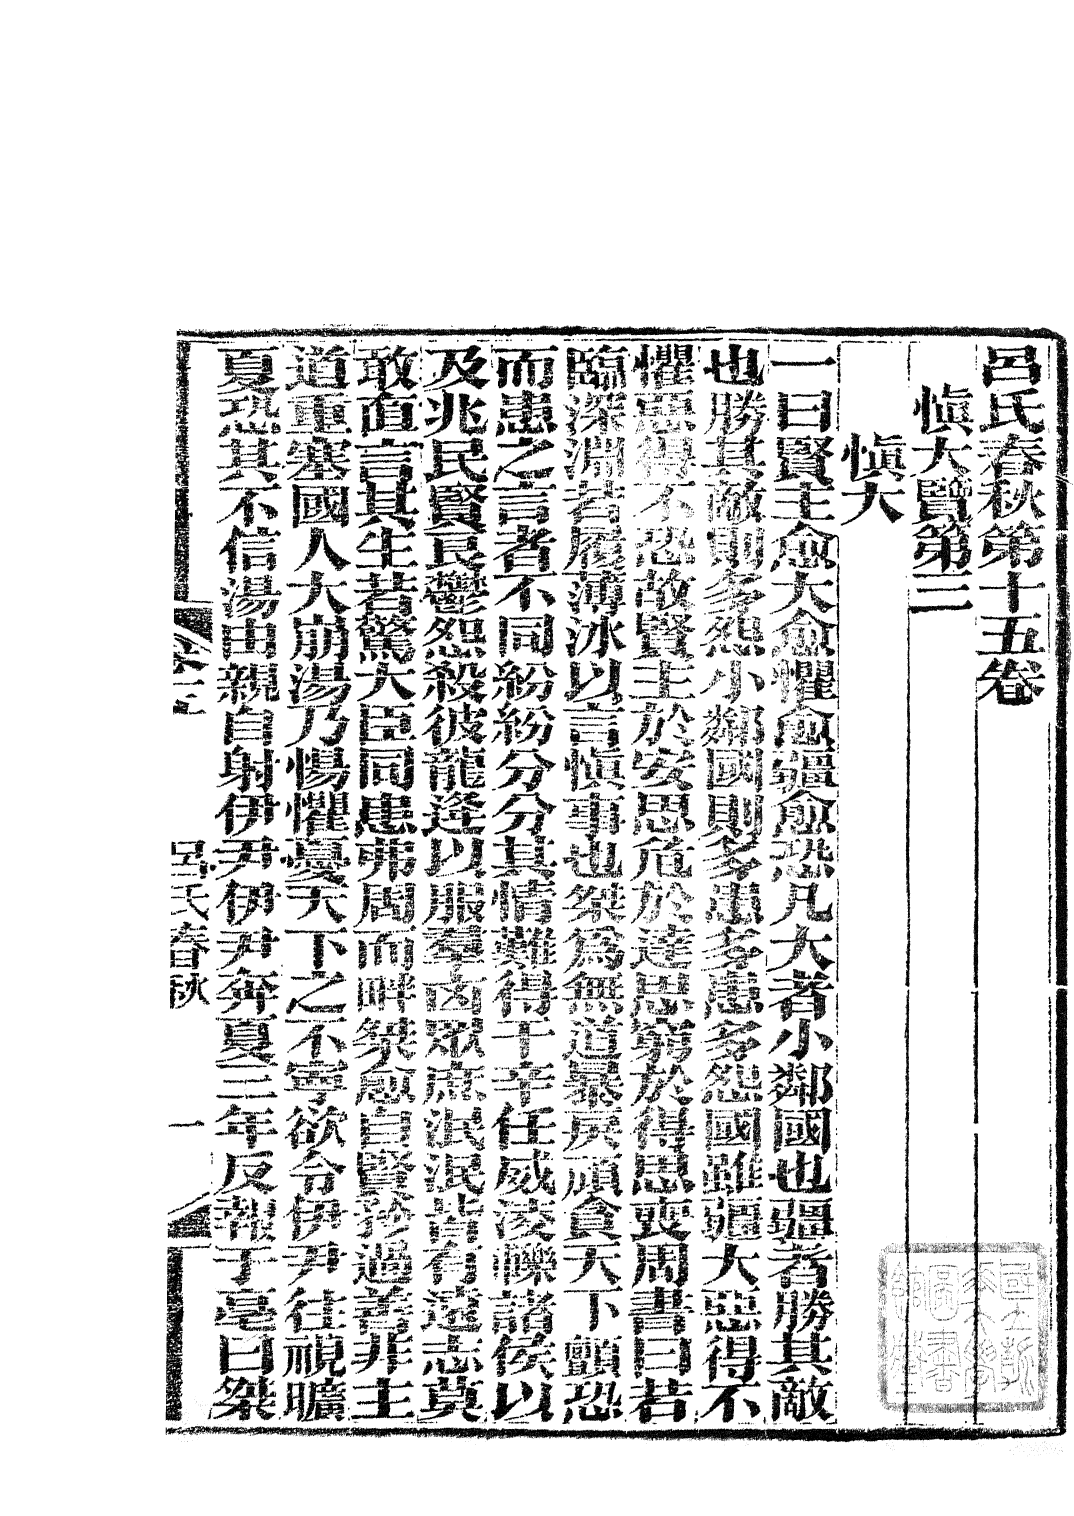 呂氏春秋第十五卷
愼大覽第三
愼大
一曰賢主愈大愈懼愈疆愈恐凡大者小鄰國也疆者勝其敵
也勝其敵則多怨小鄰國則多患多患多怨國雖疆大惡得不
懼惡得不恐故賢主於安思危於達思窮於得思喪周書曰若
臨深淵若履薄冰以言愼事也桀爲無道暴戾頑貪天下顫恐
而患之言者不同紛紛分分其情難得干辛任威凌轢諸侯以
及兆民賢良鬱怨殺彼龍逢以服羣凶衆庶泯泯皆有遠志莫
敢直言其生若驚大臣同患弗周而畔桀愈自賢矜過善非主
道重塞國人大崩湯乃惕懼憂天下之不寧欲令伊尹往視曠
夏恐其不信湯由親自射伊尹伊尹奔夏三年反報于亳曰桀
呂氏春秋 一